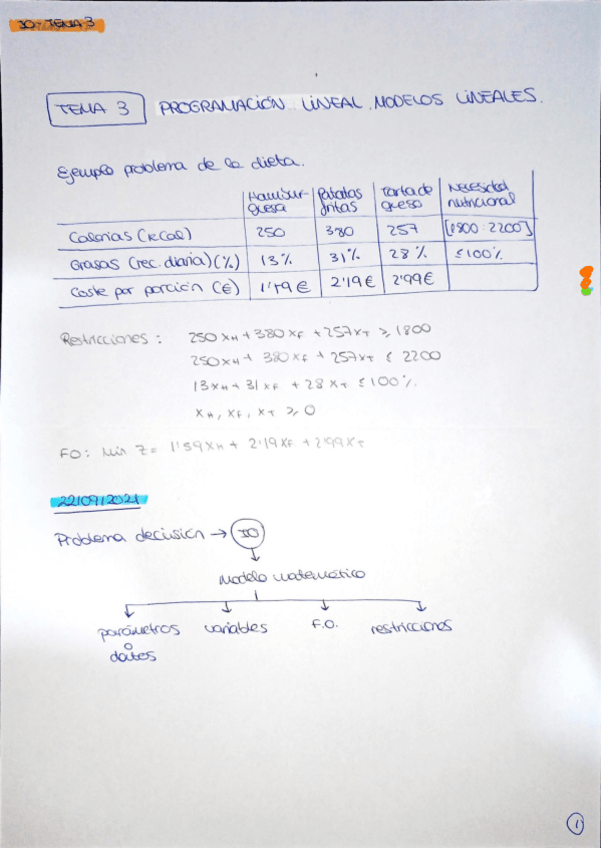 IO - TEMA 3
TEMA 3 PROGRAMACIÓN LINEAL. MODELOS LINEALES.
Ejemplo problema de la dieta.
Hambur- Patatas Tarta de Necesidad
guesa fritas queso nutricional
Calorías (kcal) 250 380 257 [1800 2200]
Grasas (rec. diaria) (%) 13% 31% 28% ≤100%
Coste por porción (€) 1'59€ 2'19€ 2'99€
Restricciones: 250 XH + 380 XF + 257 XT ≥ 1800
250 XH + 380 XF + 257 XT ≤ 2200
13 XH + 31 XF + 28 XT ≤ 100%.
XH, XF, XT ≥ 0
FO: Min Z = 1'59 XH + 2'19 XF + 2'99 XT
22/09/2021
Problema decisión → IO
Modelo matemático
parámetros variables F.O. restricciones
o
datos
1